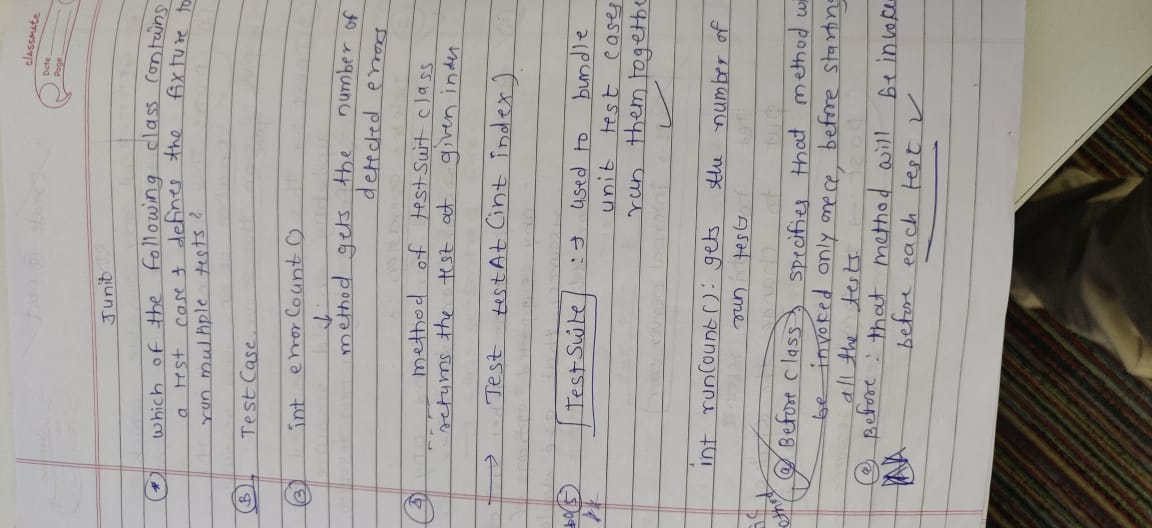 classmate
Date
Page
Junit
* which of the following class contains
a test case & defines the fixture to
run multiple tests?
B TestCase
3 int errorCount()
↓
method gets the number of
detected errors
4 method of testSuit class
returns the test at given index
→ Test testAt (int index)
5 TestSuite :→ used to bundle
unit test cases
run them togethe
✓
int runCount(): gets the number of
run tests
@ Before Class, specifies that method wi
be invoked only once, before starting
all the tests
@ Before : that method will be invoke
before each test ✓